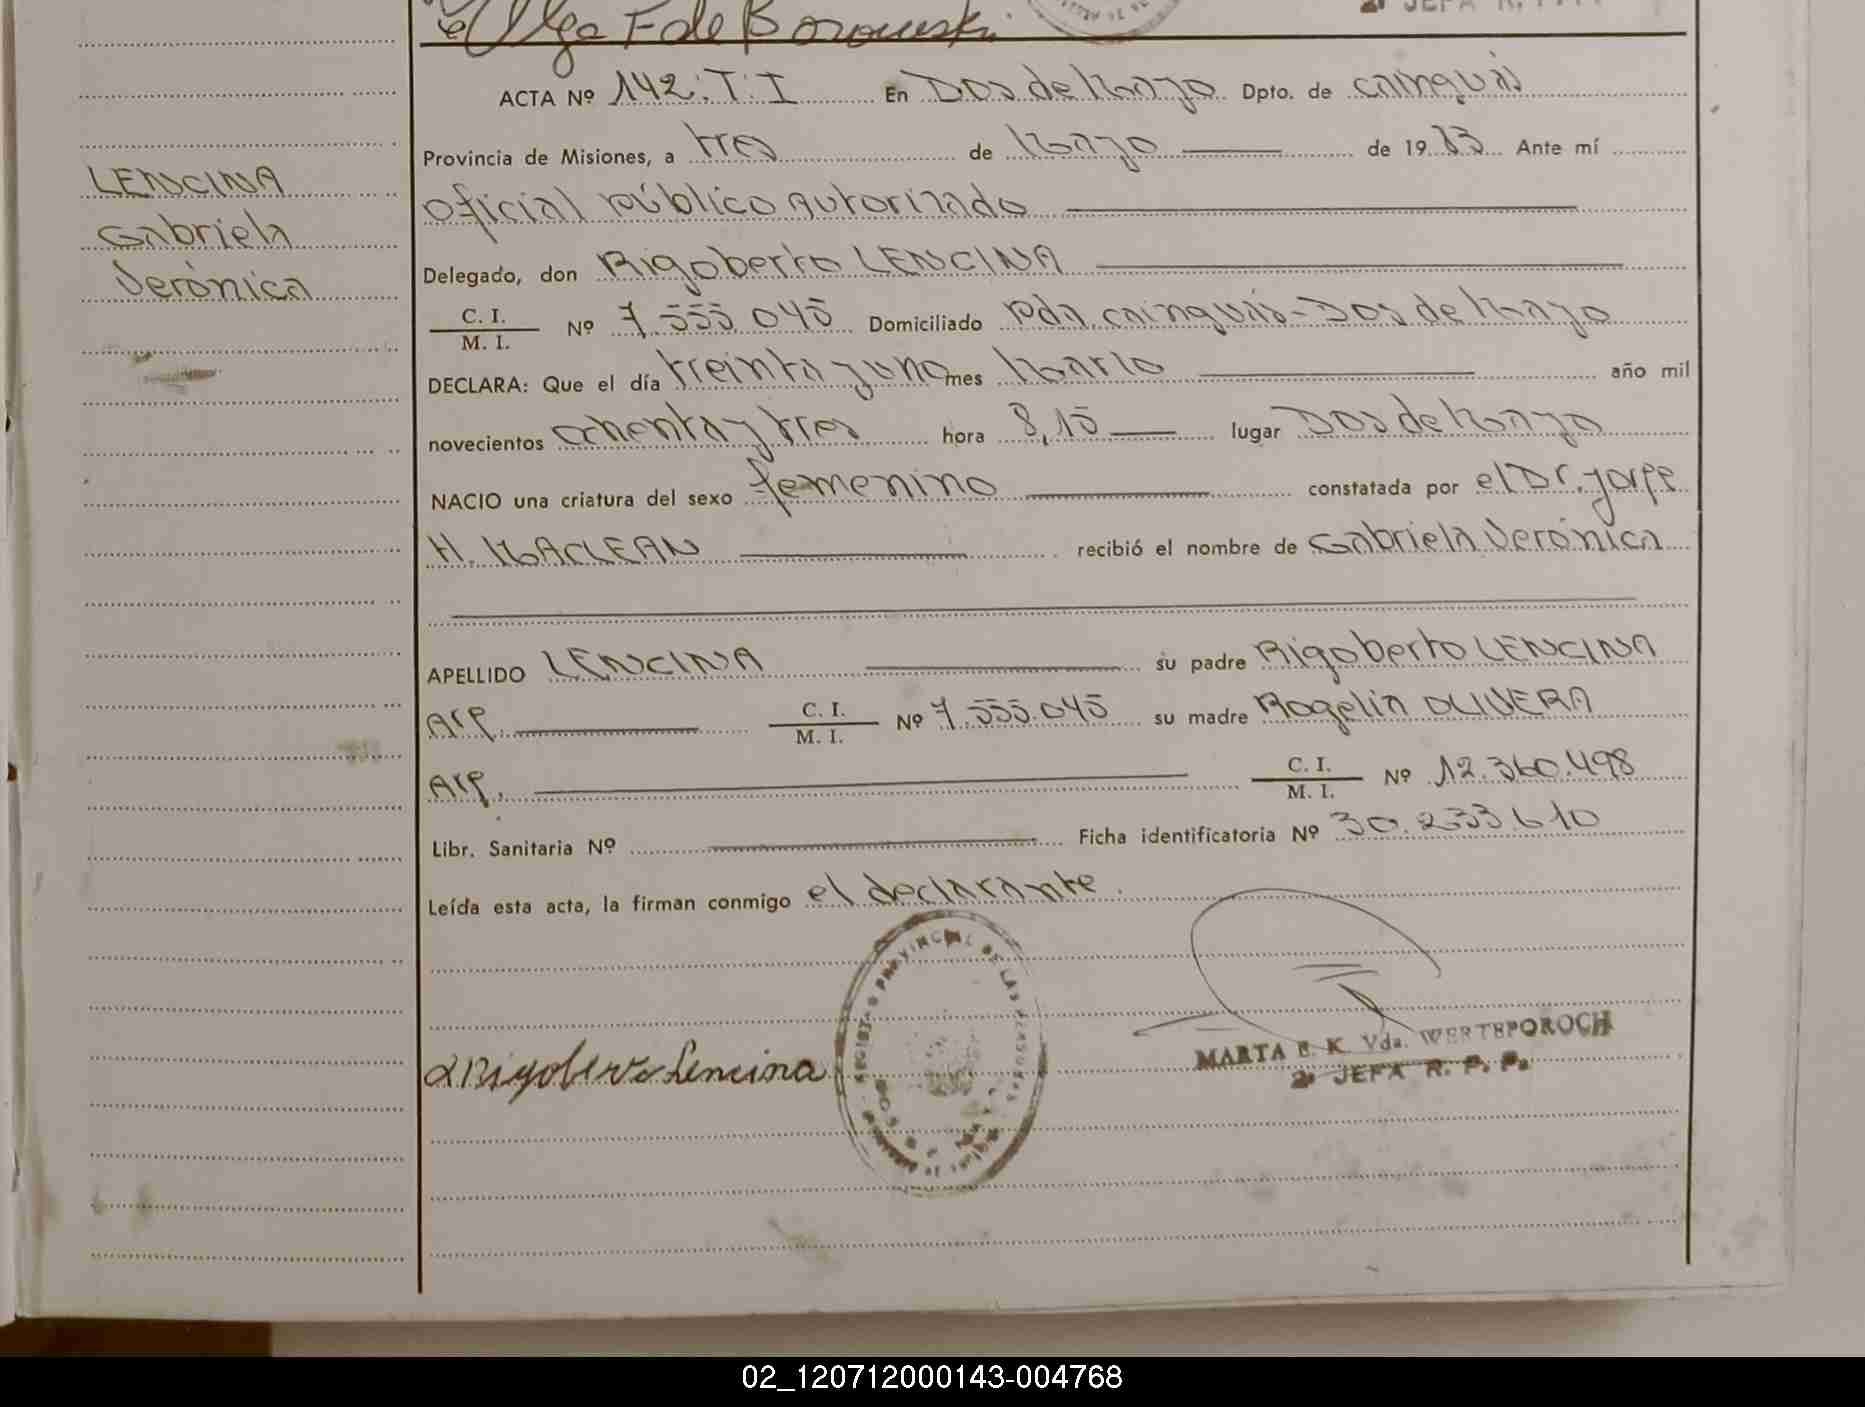 Olga F de Borowski
2ª JEFA R. P. P.
ACTA Nº 142:T:I En Dos de Mayo Dpto. de Cainguás
Provincia de Misiones, a tres de Mayo de 1983 Ante mí
Oficial público Autorizado
LENCINA
Gabriela
Verónica
Delegado, don Rigoberto LENCINA
C. I.
M. I. Nº 7.555.045 Domiciliado Pda. Cainguás-Dos de Mayo
DECLARA: Que el día treinta y uno mes Marzo año mil
novecientos ochenta y tres hora 8,15 lugar Dos de Mayo
NACIO una criatura del sexo femenino constatada por el Dr. Jorge
H. MACLEAN recibió el nombre de Gabriela Verónica
APELLIDO LENCINA su padre Rigoberto LENCINA
Arg. C. I.
M. I. Nº 7.555.045 su madre Rogelia OLIVERA
Arg. C. I.
M. I. Nº 12.360.498
Libr. Sanitaria Nº Ficha identificatoria Nº 30.233.610
Leída esta acta, la firman conmigo el declarante.
REGISTRO PROVINCIAL DE LAS PERSONAS
Rigoberto Lencina
MARTA E. K. Vda. WERTEPOROCH
2ª JEFA R. P. P.
02_120712000143-004768